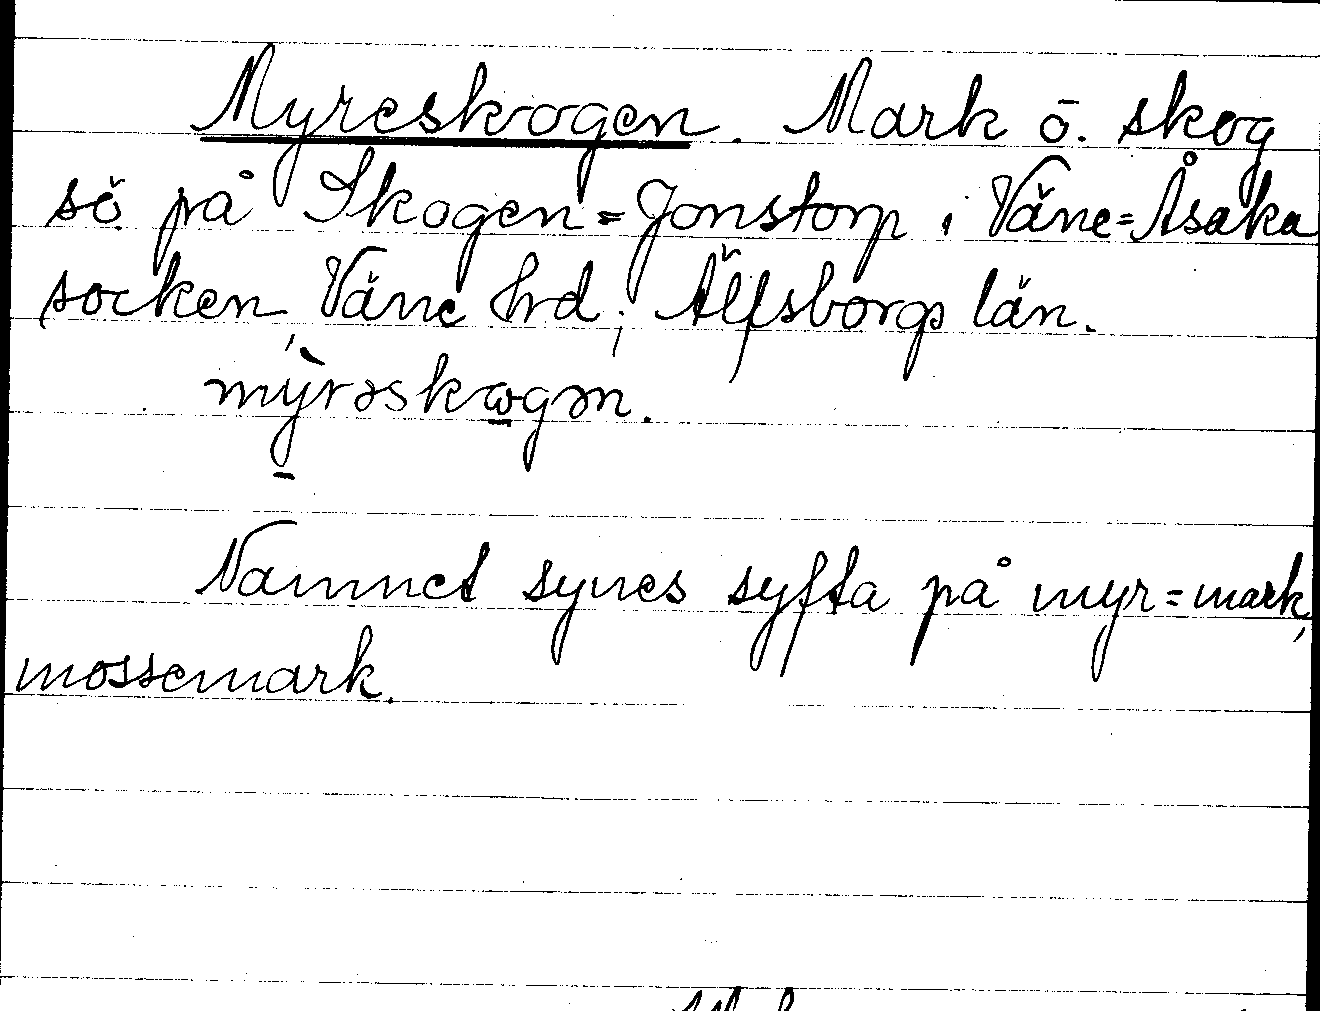 Myreskogen. Mark ö. skog
sö på Skogen=Jonstorp i Väne=Åsaka
socken, Väne hrd, Älfsborgs län.
mỳrəskωgən.
Namnet synes syfta på myr=mark,
mossemark.